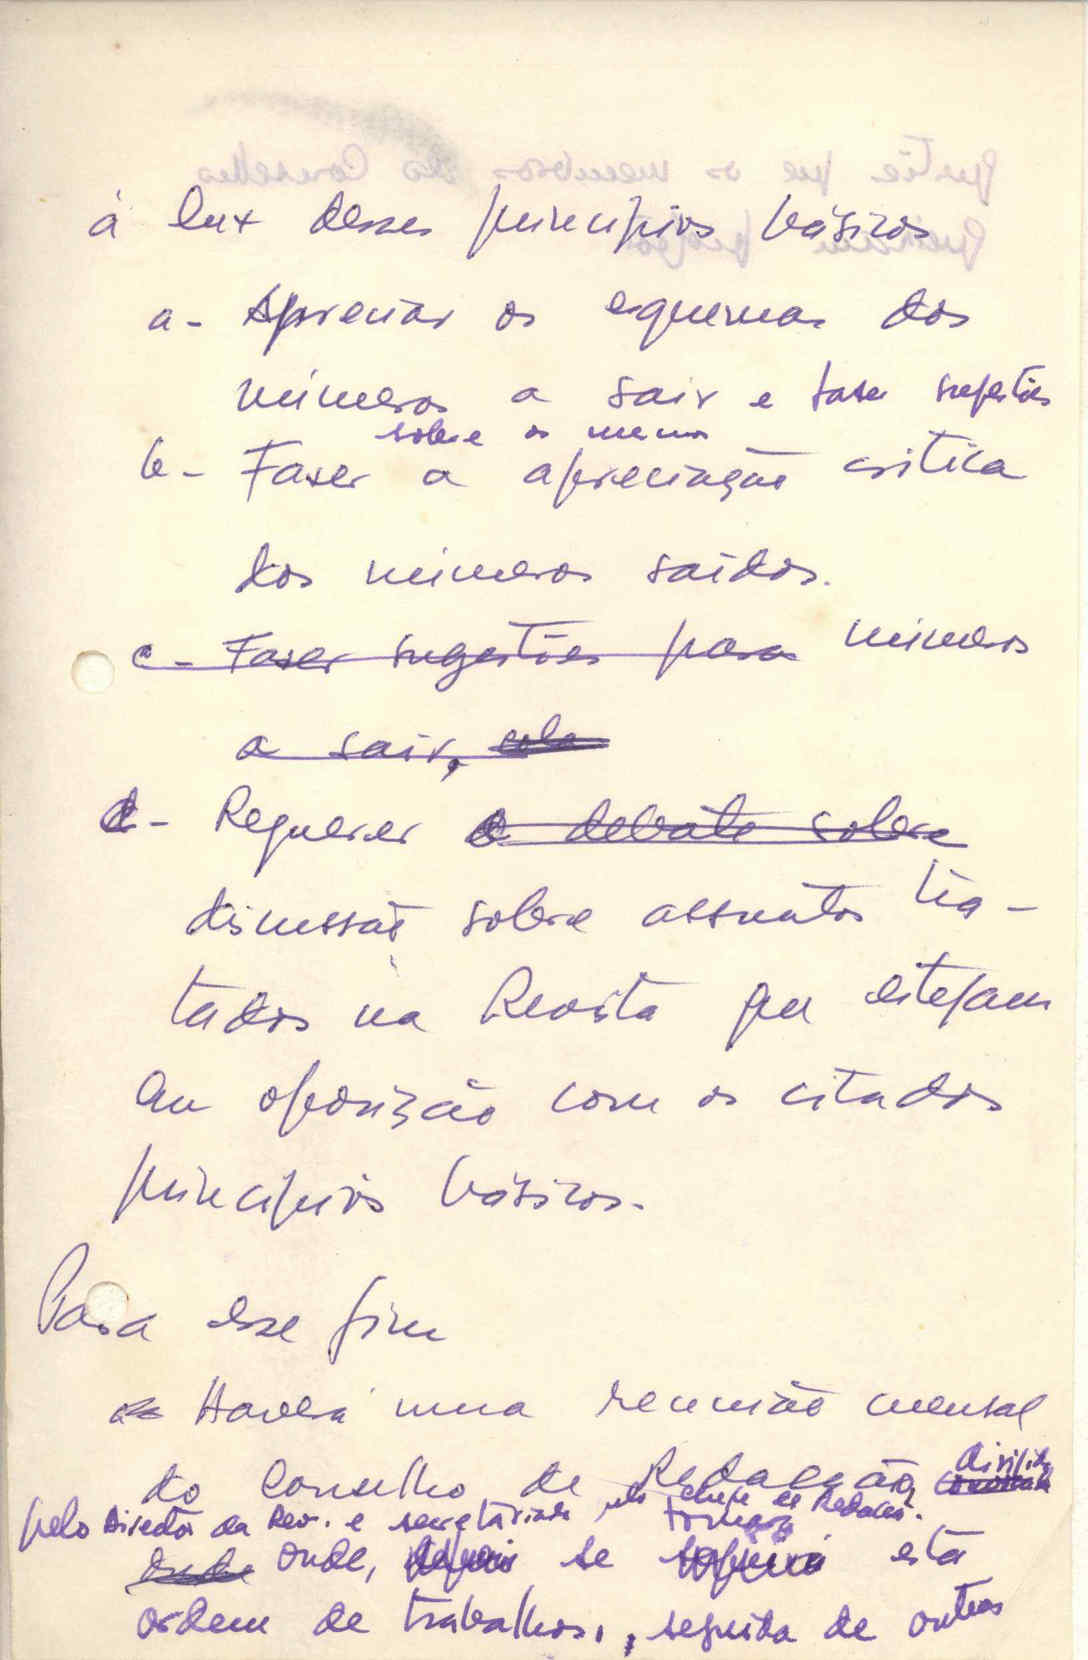 à luz desses princípios básicos
a - Apreciar os esquemas dos
números a sair e fazer sugestões
sobre os mesmos
b - Fazer a apreciação crítica
dos números saídos.
c - Fazer sugestões para números
a sair,
c - Requerer o debate sobre
discussão sobre assuntos tra-
tados na Revista que estejam
em oposição com os citados
princípios básicos.
Para esse fim
Haverá uma reunião mensal
do Conselho de Redacção, dirigida
pelo Director da Rev. e secretariada pelo chefe de Redacção.
onde onde, se tomará esta
ordem de trabalhos, seguida de outros